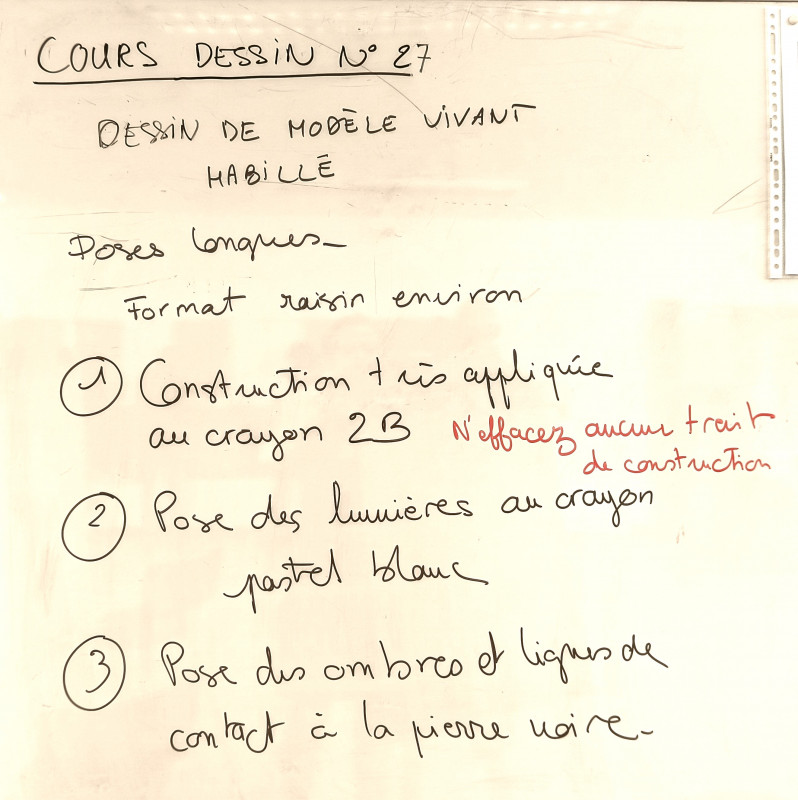 COURS DESSIN N° 27
DESSIN DE MODÈLE VIVANT
HABILLÉ
Poses longues_
Format raisin environ
1 Construction très appliquée
au crayon 2B N'effacez aucun trait
de construction
2 Pose des lumières au crayon
pastel blanc
3 Pose des ombres et lignes de
contact à la pierre noire_